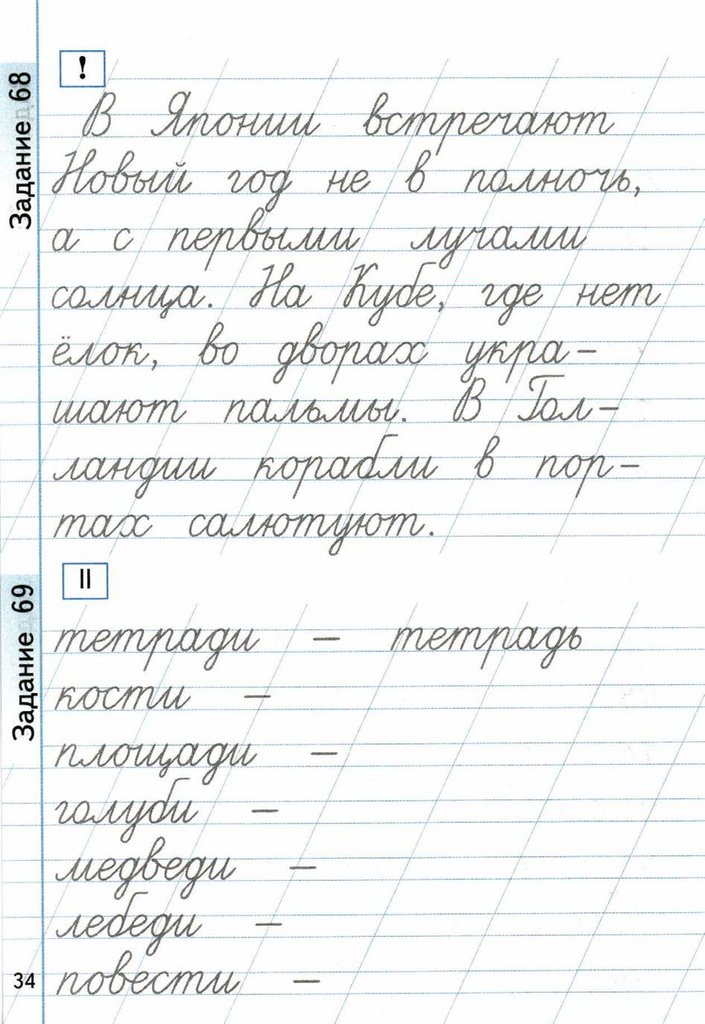 Задание 68
!
В Японии встречают
Новый год не в полночь,
а с первыми лучами
солнца. На Кубе, где нет
ёлок, во дворах укра–
шают пальмы. В Гол–
ландии корабли в пор–
тах салютуют.
Задание 69
II
тетради – тетрадь
кости –
площади –
голуби –
медведи –
лебеди –
повести –
34